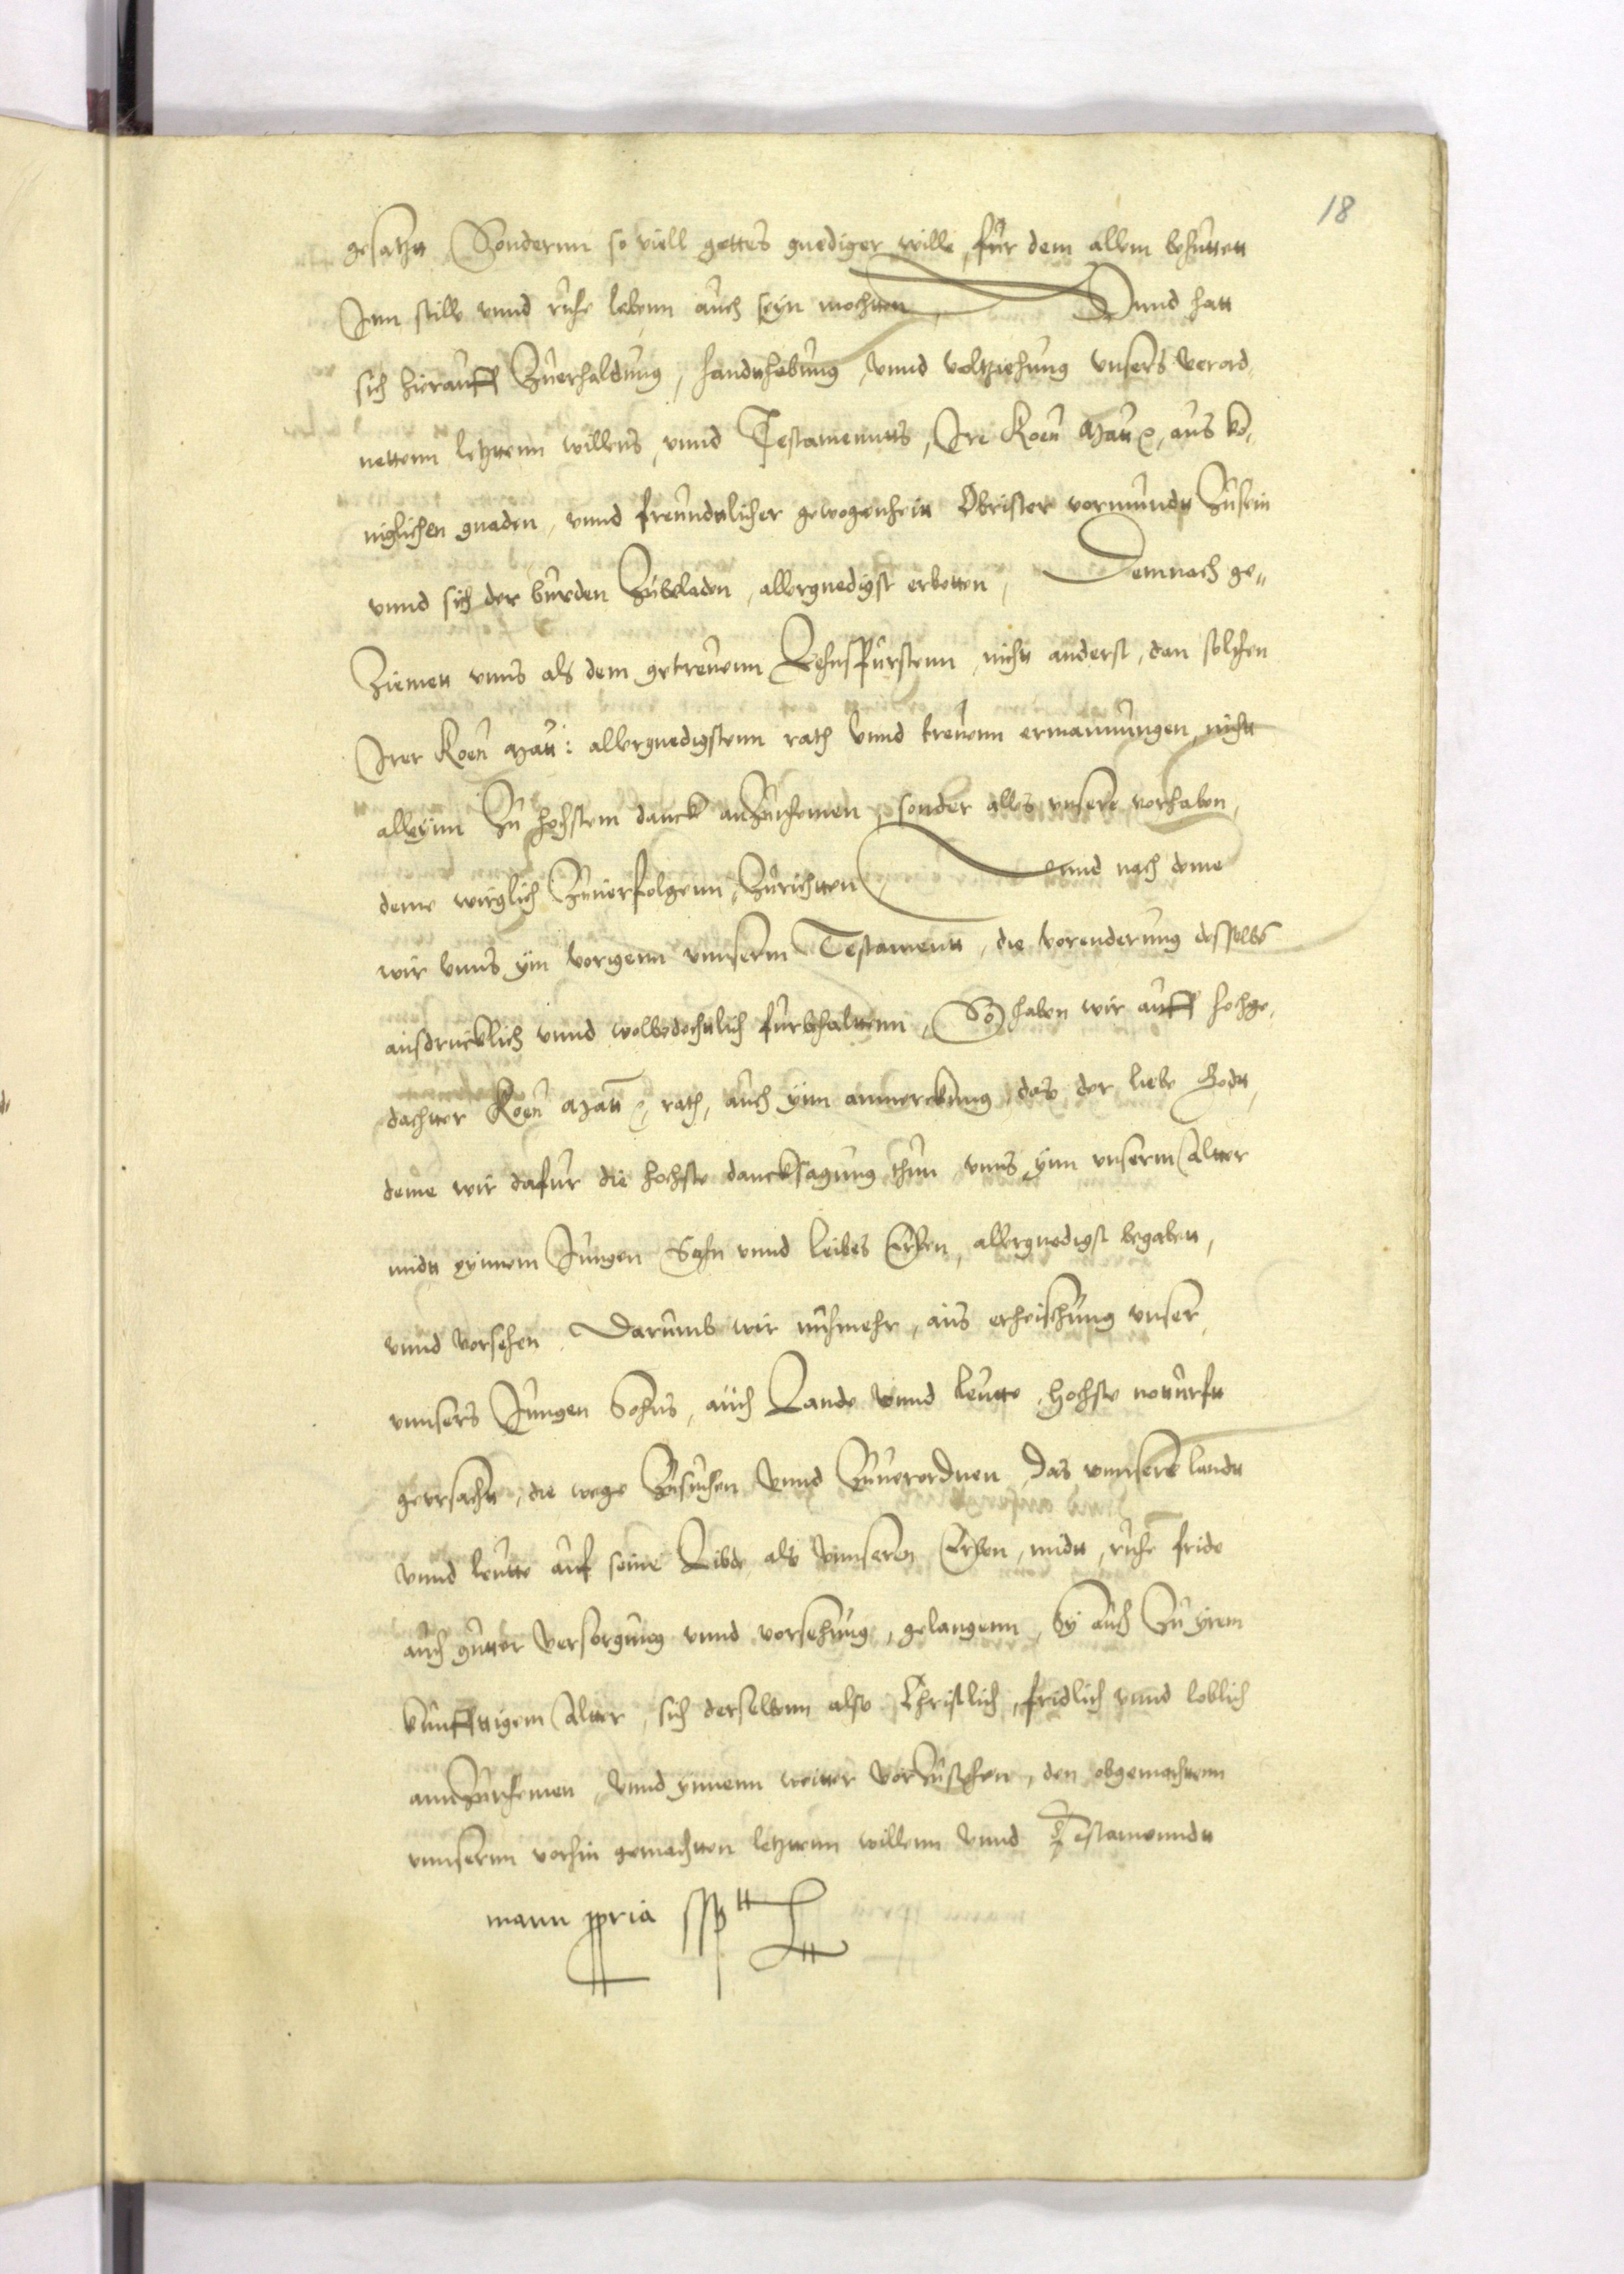 18
gesatzt Sondernn so viell gottes gnediger wille, fur dem allem behuttett
Inn stille vnnd ruhe lebenn auch seyn mochtten, Vnnd hatt
sich hierauff Zuerhaldung, handthabung, vnnd voltziehung vnsers verord,
nettenn letzttenn willens, vnnd Testamenntts, Ire Koen Matt, aus ko,
niglichen gnaden, vnnd freundtlicher gewogenheitt Obrister vormundt Zusein
vnnd sich der burden Zubeladen, allergnedigst erbotten, Demnach ge,,
Ziemett vnns als dem getreuenn Lehnsfurstenn, nicht anderst, dan solchen
Irer Koen Matt: allergnedigstenn rath vnnd treuenn ermannungen, nicht
alleynn Zu hochstem danck anZunhemen, sonder alles vnsere vorhaben,
deme wirglich Zuuerfolgenn, Zurichtten Vnnd nach deme
wir vnns ym vorigenn vnnserm Testamentt, die vorenderung desselbe
ausdrucklich vnnd wolbedechtlich furbehalttenn, So haben wir auff hochge,
dachtter Koen Matt, rath, auch ynn anmerckung, das der liebe Godtt,
deme wir dafur die hochste dancksagung thun vnns ynn vnserm Altter
midtt eynnem Jungen Sohn vnnd leibes Erben, allergnedigst begabett,
vnnd vorsehen. Darumb wir nuhmehr, aus erheischung vnser,
vnnsers Jungen Sohns, auch Lande vnnd leutte, hochste notturftt
gevrsacht, die wege Zusuchen vnnd Zuuerordnen, das vnnsere landtt
vnnd leutte auf seine Libde als vnnseren Erben, midtt, ruhe fride
auch gutter versorgung vnnd vorsehung, gelangenn, Sy auch Zu yrem
kunfftigem Altter, sich derselbenn also Christlich, fridlich vnnd loblich
annZunhemen, vnnd ynnenn weitter vorZustehen, den obgemachttenn
vnnsernn vorhin gemachtten letzttenn willenn vnnd Testamenndtt
manu ppria sspt